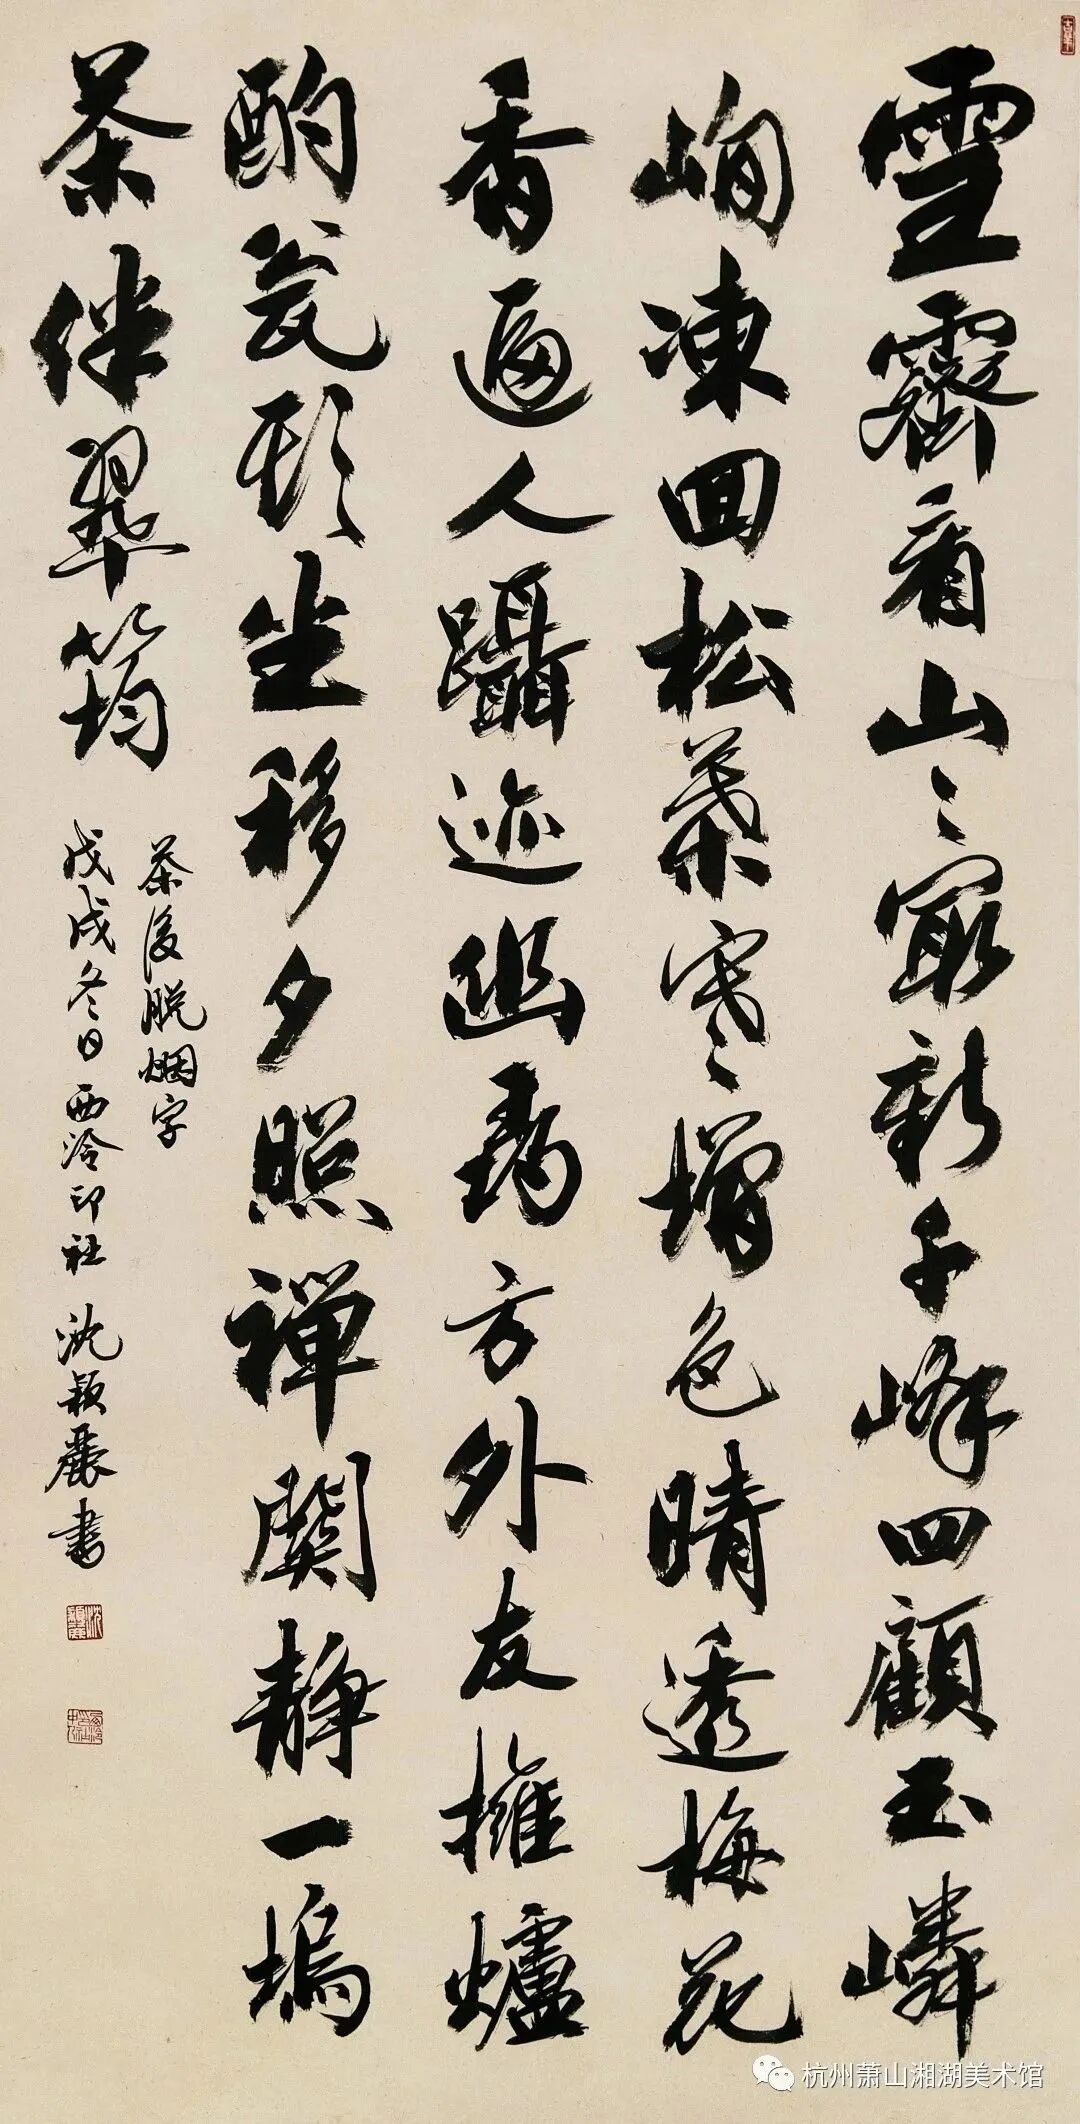 雪霽看山山寂新千峰四顧玉嶙
峋凍回松葉寒增色晴透梅花
香逼人躡迹幽尋方外友擁爐
酌瓮頭坐移夕照禪關靜一塢
茶伴翠筠
茶後脱烟字
戊戌冬日西泠印社沈颖麗書
杭州萧山湘湖美术馆